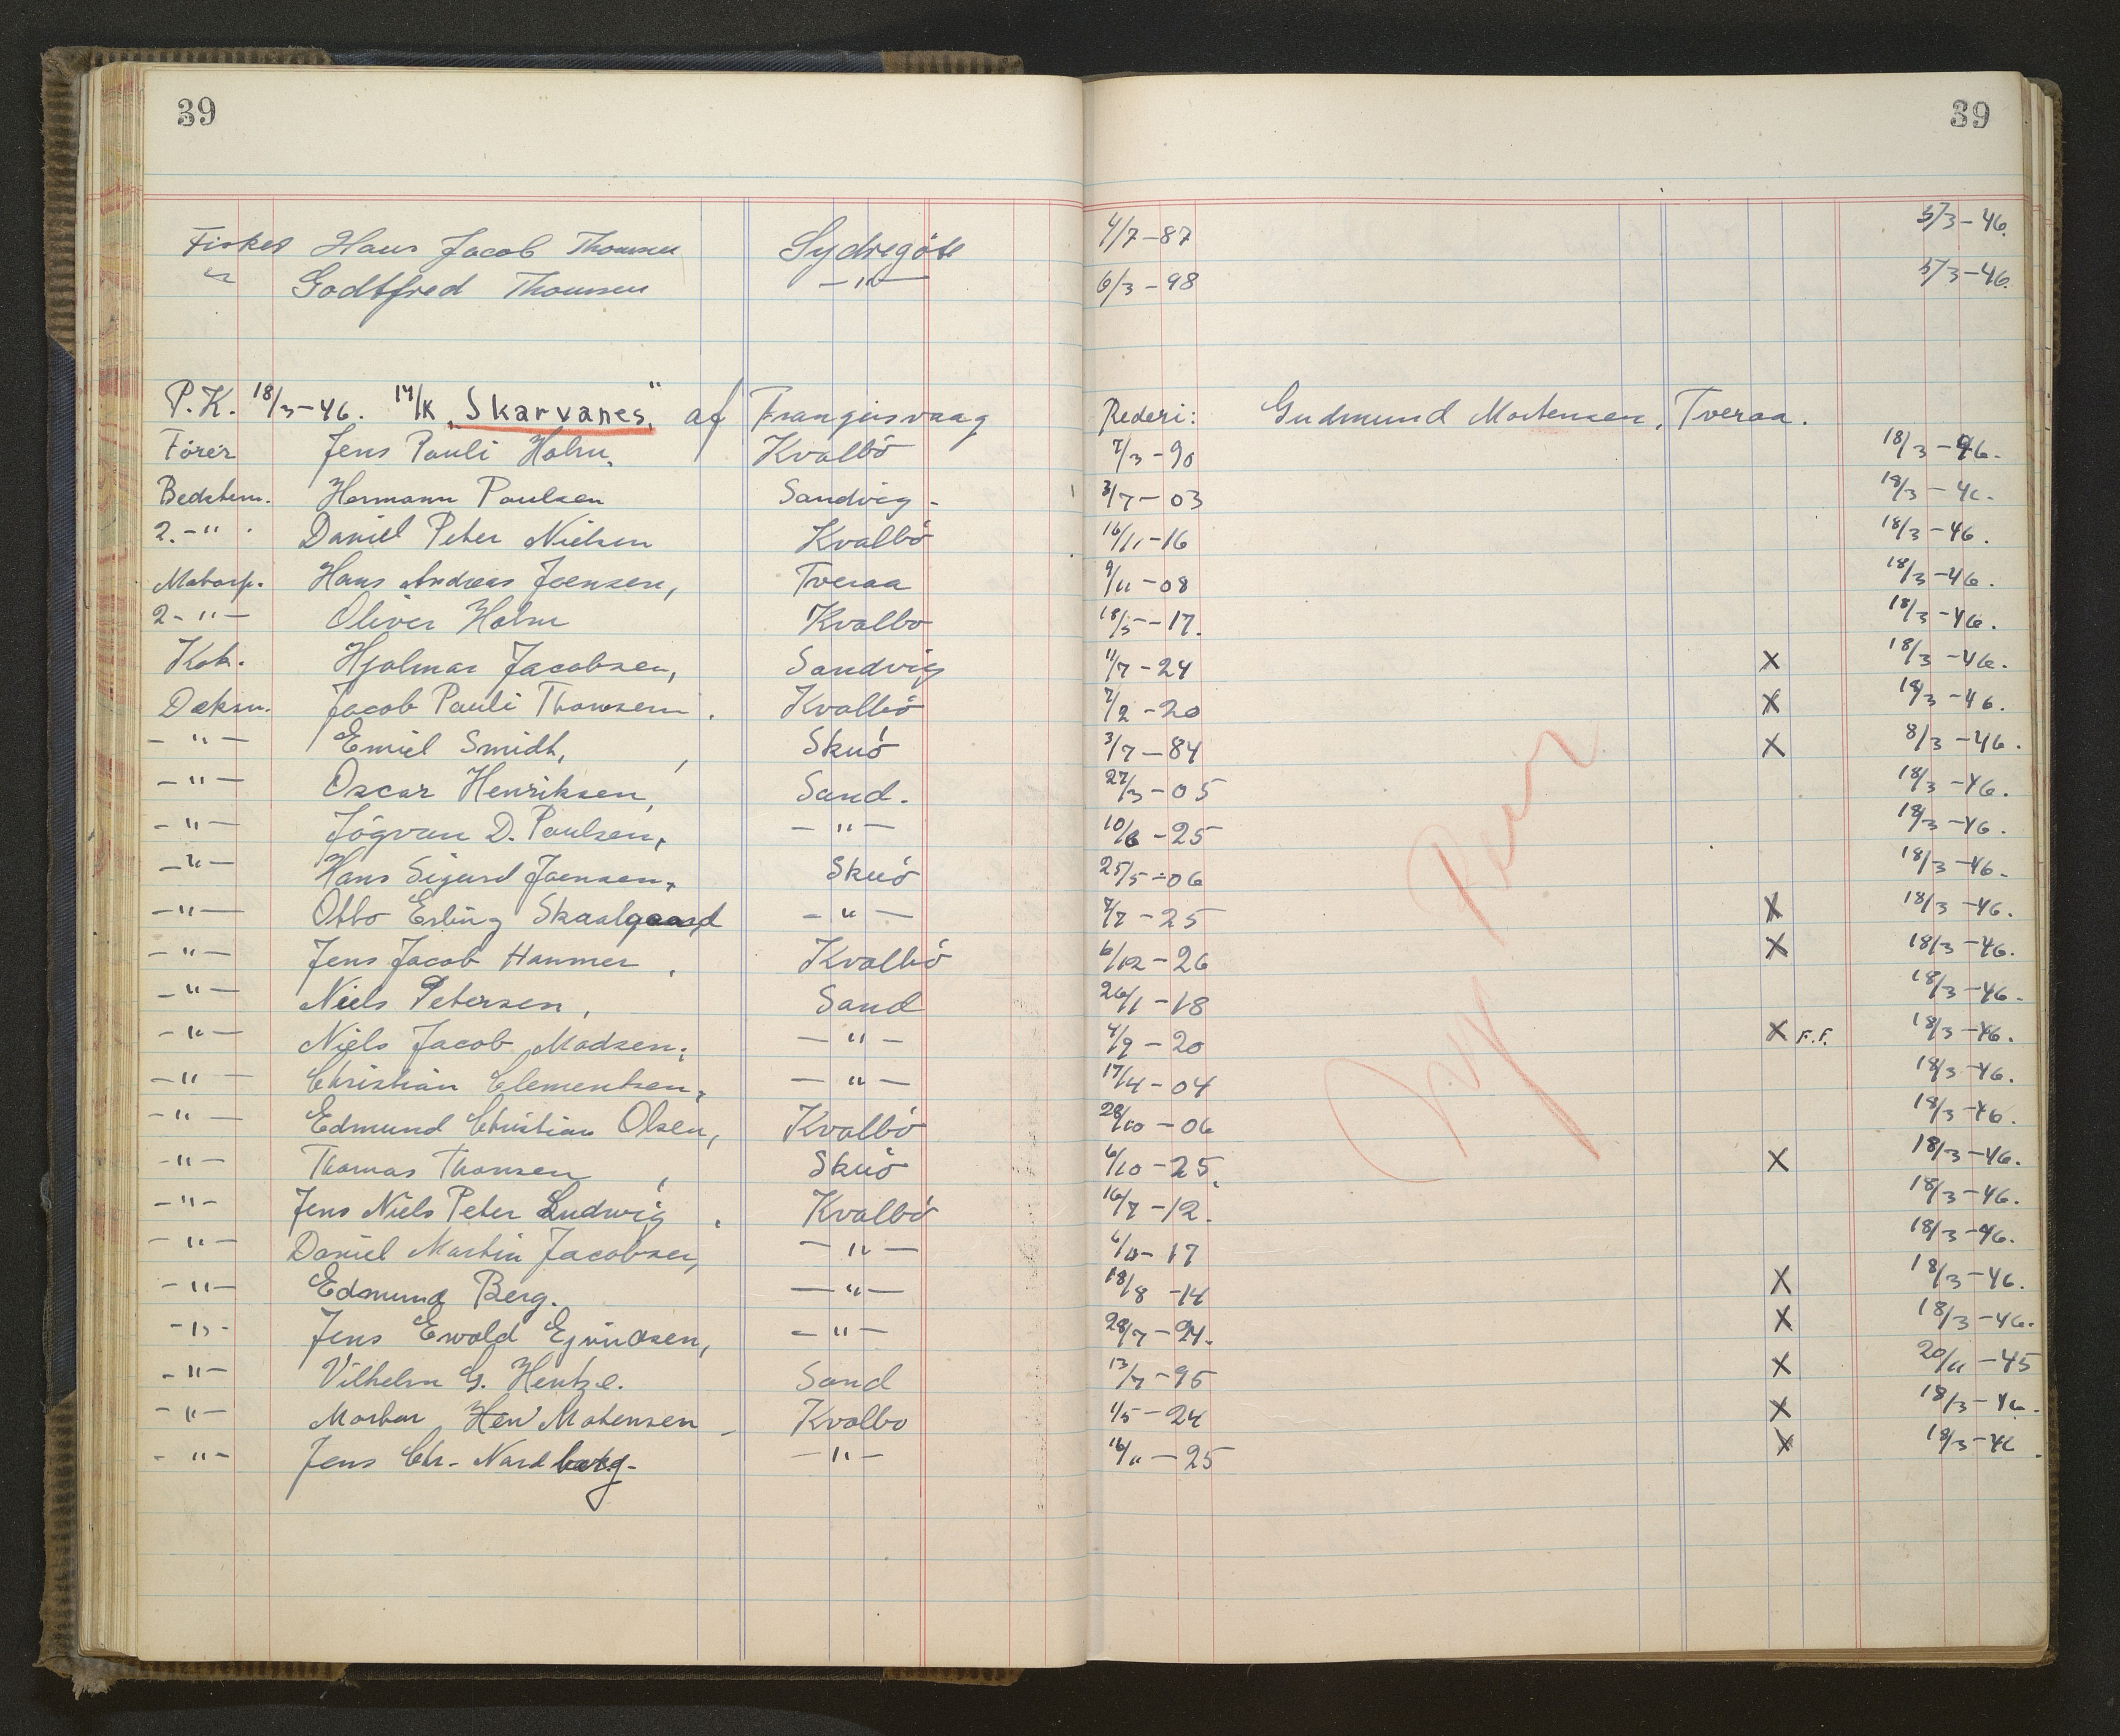 39 39
Fisker Hans Jacob Thomsen Sydregöte 4/7-87 5/3-46.
-"- Godtfred Thomsen -"- 6/3-98 5/3-46.
P.K. 18/3-46. M/K "Skarvanes" af Trangisvaag Rederi: Gudmund Mortensen, Tveraa.
Förer Jens Pauli Holm, Kvalbö 7/3-90 18/3-46.
Bedstem. Hermann Poulsen Sandvig- 3/7-03 18/3-46.
2.-"- Daniel Peter Nielsen Kvalbö 16/11-16 18/3-46.
Motorp. Hans Andreas Joensen, Tveraa 9/11-08 18/3-46.
2-"- Oliver Holm Kvalbö 18/5-17. 18/3-46.
Kok. Hjalmar Jacobsen, Sandvig 11/7-24 X 18/3-46.
Deksm. Jacob Pauli Thomsen. Kvalbö 7/2-20 X 18/3-46.
-"- Emiel Smidt, Skuö 3/7-84 X 8/3-46.
-"- Oscar Henriksen, Sand. 27/3-05 18/3-46.
-"- Jógvan D. Poulsen, -"- 10/6-25 18/3-46.
-"- Hans Sigurd Joensen, Skuö 25/5-06 18/3-46.
-"- Otto Erling Skaalgaard -"- 7/7-25 X 18/3-46.
-"- Jens Jacob Hammer, Kvalbö 6/12-26 X 18/3-46.
-"- Niels Petersen, Sand 26/1-18 18/3-46.
-"- Niels Jacob Madsen, -"- 4/9-20 X F.F. 18/3-46.
-"- Christian Clementsen, -"- 17/4-04 18/3-46.
-"- Edmund Christian Olsen, Kvalbö 28/10-06 18/3-46.
-"- Thomas Thomsen, Skuö 6/10-25. X 18/3-46.
-"- Jens Niels Peter Ludwig. Kvalbö 16/7-12. 18/3-46.
-"- Daniel Martin Jacobsen, -"- 6/11-17 18/3-46.
-"- Edmund Berg. -"- 18/8-14 X 18/3-46.
-"- Jens Ewald Ejvindsen, -"- 28/7-24. X 18/3-46.
-"- Vilhelm G. Hentze. Sand 13/7-95 X 20/11-45
-"- Morten Hen Motensen- Kvalbo 1/5-24 X 18/3-46.
-"- Jens Chr. Nordberg- -"- 16/11-25 X 18/3-46.